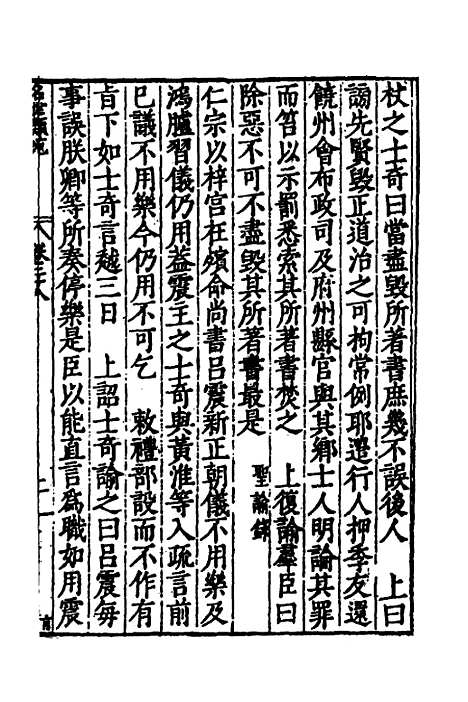 杖之士奇曰當盡毀所著書庶幾不誤後人　上曰
謗先賢毀正道治之可拘常例耶遣行人押季友還
饒州會布政司及府州縣官與其鄉士人明諭其罪
而笞以示罰悉索其所著書焚之　上復諭羣臣曰
除惡不可不盡毀其所著書最是　聖諭錄
仁宗以梓宮在殯命尚書呂震新正朝儀不用樂及
鴻臚習儀仍用蓋震主之士奇與黃淮等入疏言前
已議不用樂今仍用不可乞　敕禮部設而不作有
旨下如士奇言越三日　上詔士奇諭之曰呂震每
事誤朕卿等所奏停樂是臣以能直言為職如用震